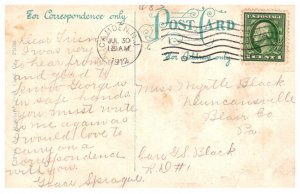 For Correspondence only
POST CARD
For Address only
JUL 30
12 AM
1912
Dear Friend
I was very
to hear from
and glad to
know George is
in safe hands.
you must write
to me again as
I would love to
carry on a
Correspondence
with you.
Grace Sprague
Miss Myrtle Black
Duncansville
Blair Co
Pa.
Care G S Black
R.D #1